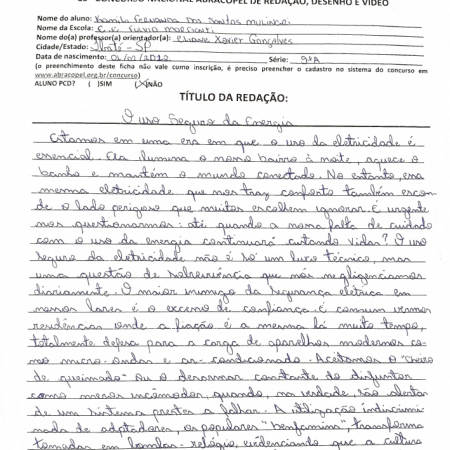 CONCURSO NACIONAL ABRACOPEL DE REDAÇÃO, DESENHO E VÍDEO
Nome do aluno: Fernanda dos Santos
Nome da Escola: E.E.
Nome do(a) professor(a) orientador(a): Eliane Xavier Gonçalves
Cidade/Estado: - SP
Data de nascimento: Série: 9ºA
(o preenchimento deste ficha não vale como inscrição, é preciso preencher o cadastro no sistema do concurso em
www.abracopel.org.br/concurso)
ALUNO PCD? ( )SIM (X)NÃO
TÍTULO DA REDAÇÃO:
O uso Seguro da Energia
Estamos em uma era em que o uso da eletricidade é
essencial. Ela ilumina o nosso bairro à noite, aquece o
banho e mantém o mundo conectado. No entanto, essa
mesma eletricidade que nos traz conforto também escon-
de o lado perigoso que muitos escolhem ignorar. É urgente
nos questionarmos: até quando a nossa falta de cuidado
com o uso da energia continuará custando vidas? O uso
seguro da eletricidade não é só um luxo técnico, mas
uma questão de sobrevivência que nós negligenciamos
diariamente. O maior inimigo da segurança elétrica em
nossos lares é o excesso de confiança. É comum vermos
residências onde a fiação é a mesma há muito tempo,
totalmente defasa para a carga de aparelhos modernos co-
mo micro-ondas e ar-condicionado. Aceitamos o "cheiro
de queimado" ou o desarmar constante do disjuntor
como meros incômodos, quando, na verdade, são alertas
de um sistema prestes a falhar. A utilização indiscrimi-
nada de adaptadores, os populares "benjamins", transforma
tomadas em bombas-relógio, evidenciando que a cultura